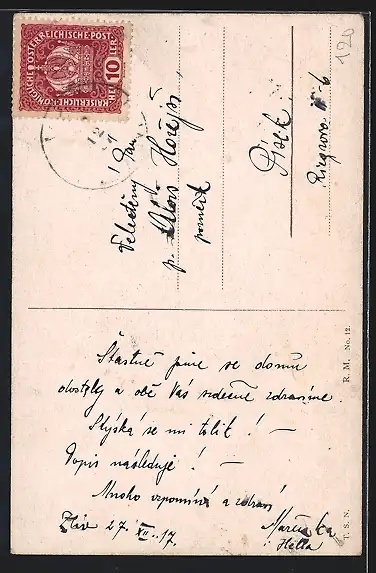 KAISERLICHE KÖNIGLICHE ÖSTERREICHISCHE POST
10
HELLER
120
Velectěný Pan
p. Alois Hořejší
Písek
Riegrova 6
Šťastně jsme se domů
dostaly a obě Vás srdečně zdravíme.
Stýská se mi tolik! –
Dopis následuje! –
Mnoho vzpomíná a zdraví
27. XII. 17. Mařenka
i Hella
R. M. No. 12.
T. S. N.